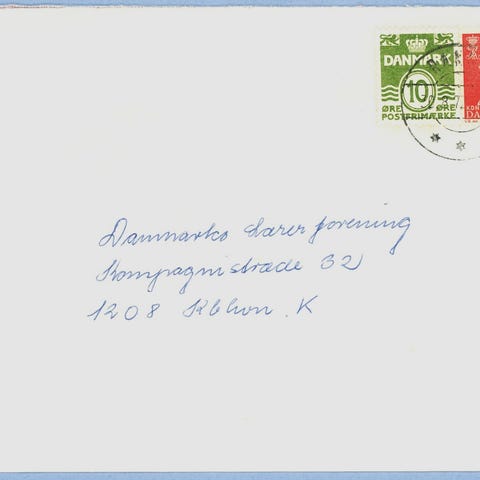 DANMARK
10
ØRE ØRE
POSTFRIMÆRKE
DA
Danmarks Lærerforening
Kompagnistræde 32
1208 Kbhvn. K